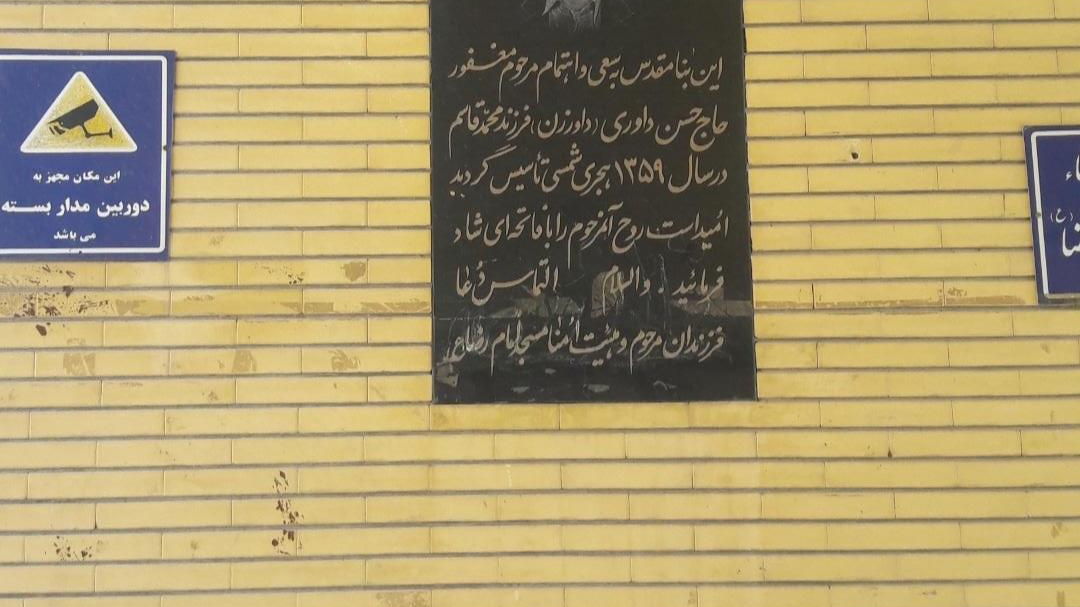 این بنا مقدس به سعی و اهتمام مرحوم مغفور
حاج حسن داوری (داورزن) فرزند محمد قاسم
در سال ۱۳۵۹ هجری شمسی تأسیس گردید
امید است روح آنمرحوم را با فاتحه‌ای شاد
فرمائید . والسلام التماس دعا
فرزندان مرحوم و هیئت امنا مسجد امام رضا (ع)
این مکان مجهز به
دوربین مدار بسته
می باشد
(ع)